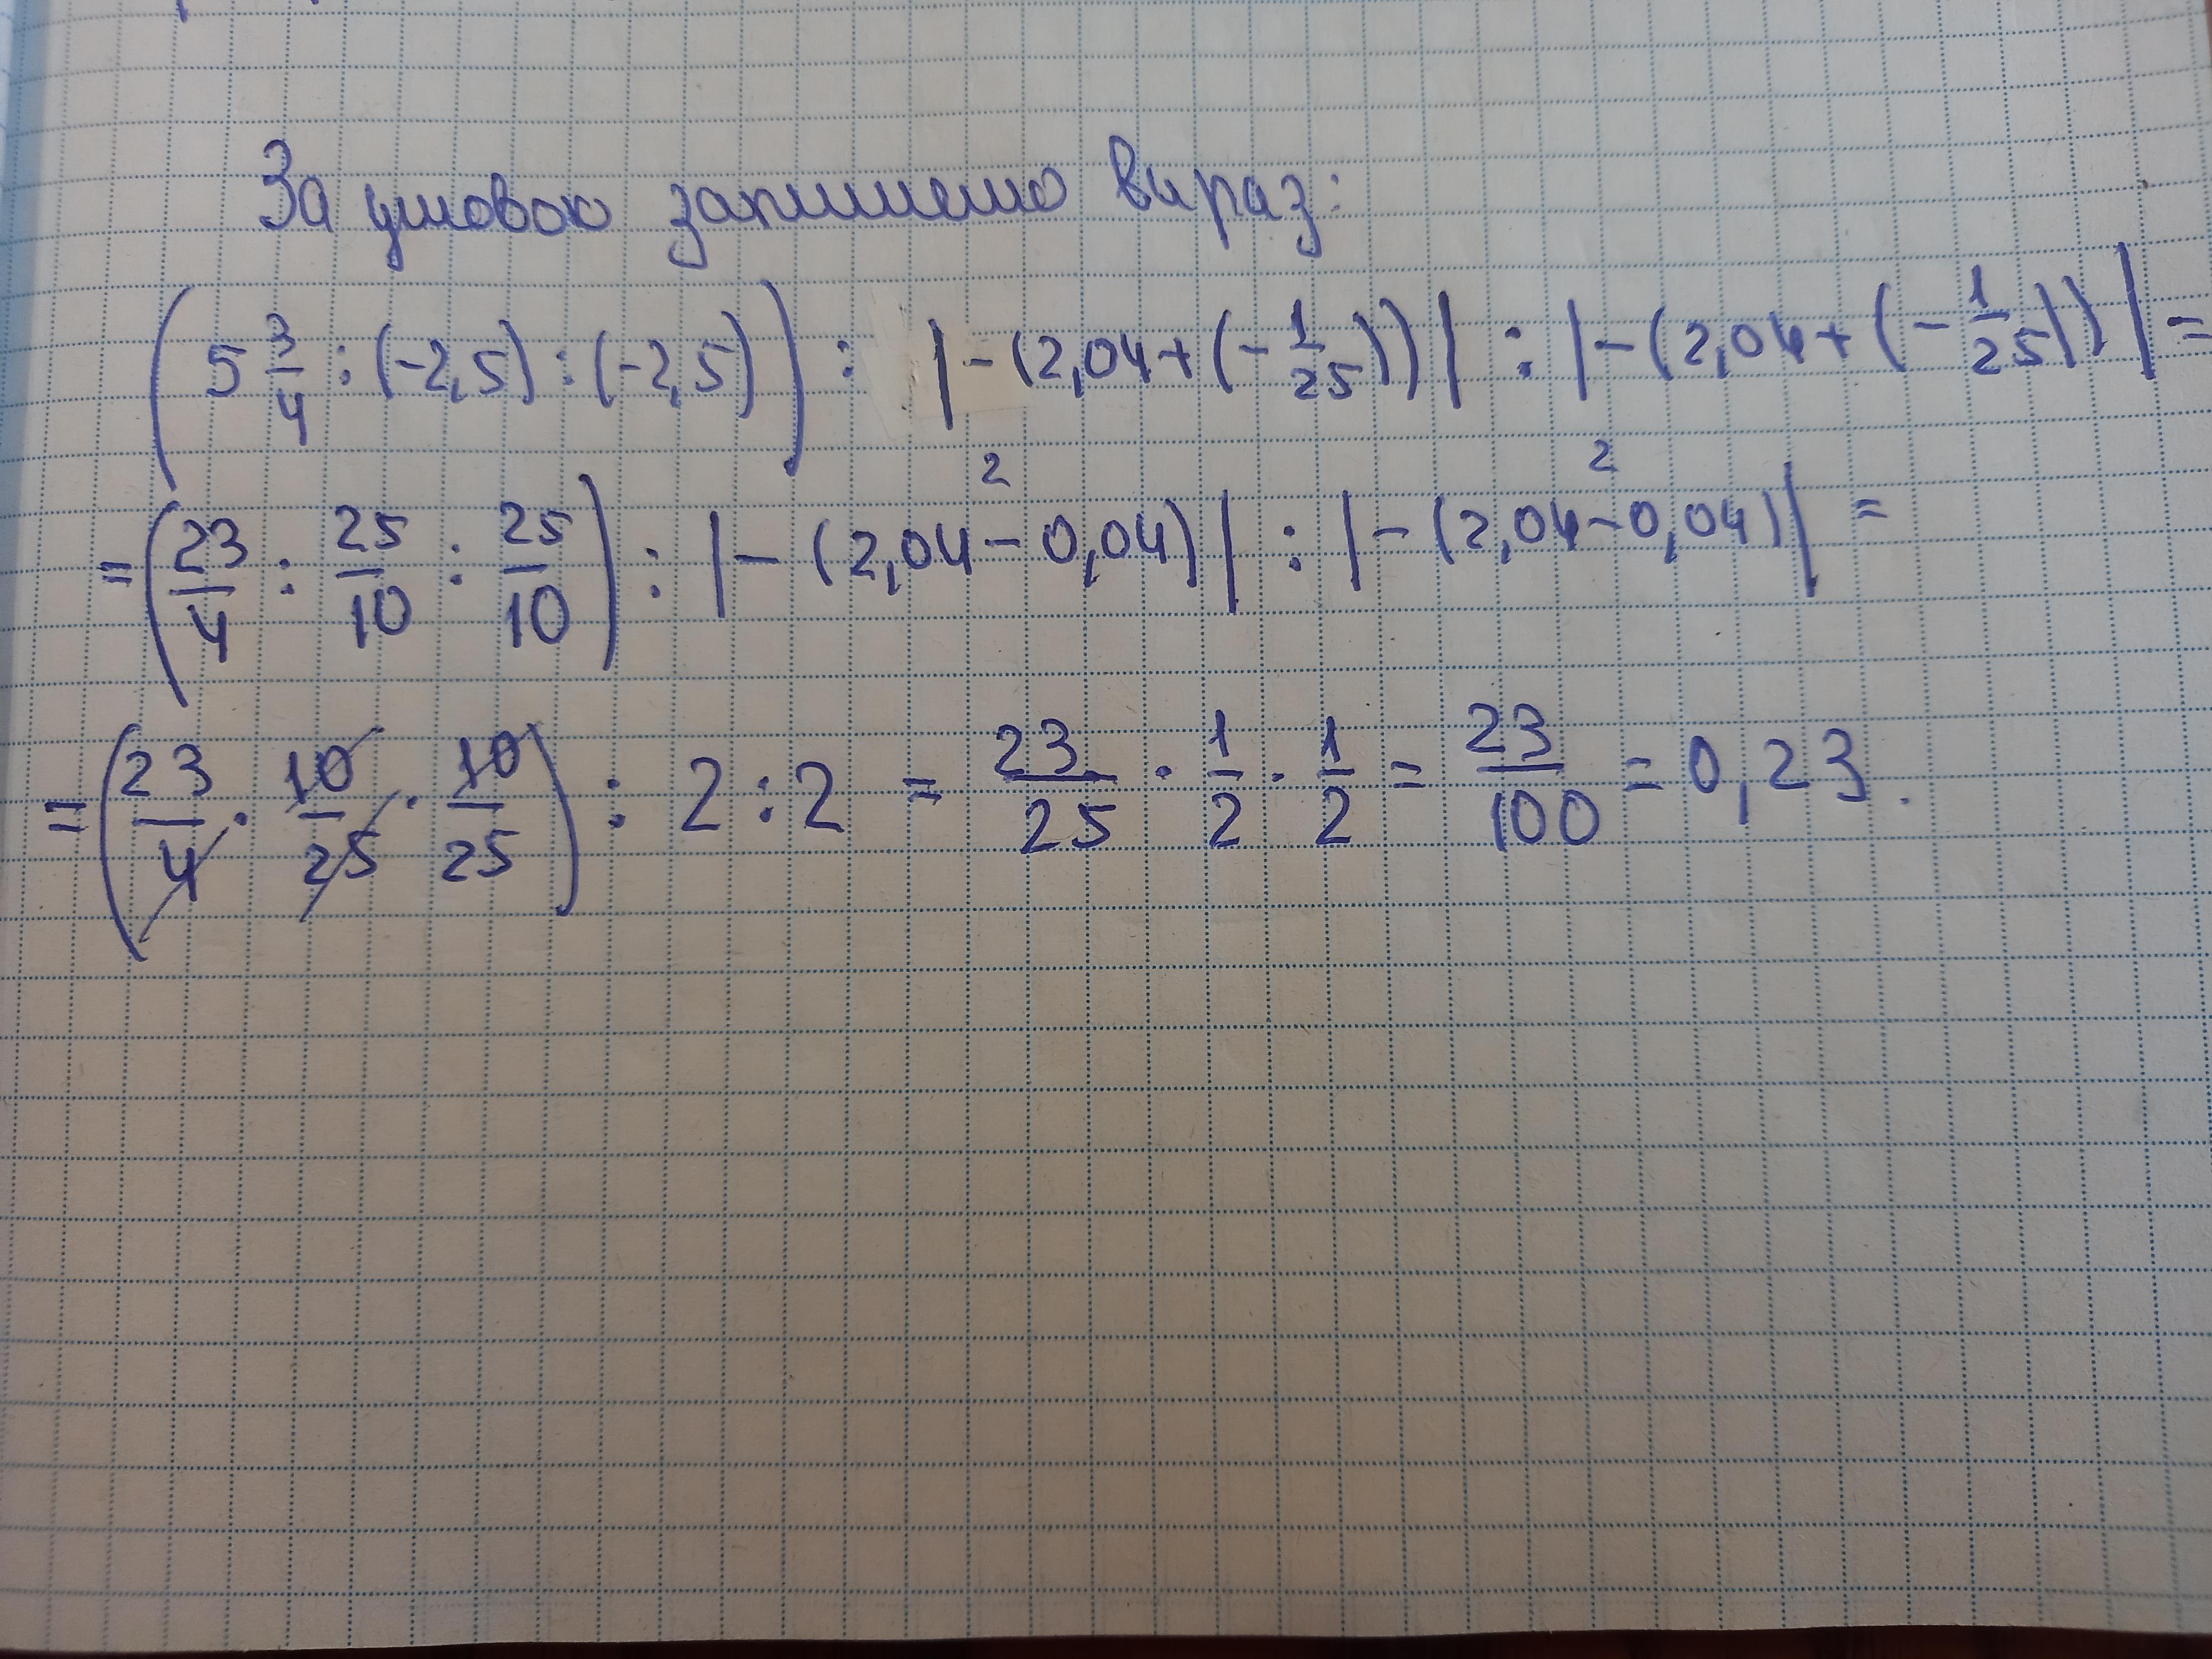 За умовою запишемо вираз:
(5 3/4 : (-2,5) : (-2,5)) : |-(2,04+(-1/25))| : |-(2,04+(-1/25))| =
= (23/4 : 25/10 : 25/10) : |-(2,04-0,04)| 2 : |-(2,04-0,04)| 2 =
= (23/4 · 10/25 · 10/25) : 2 : 2 = 23/25 · 1/2 · 1/2 = 23/100 = 0,23.